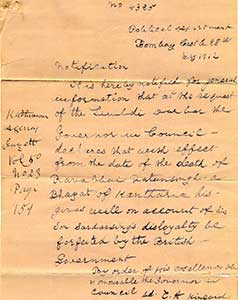 No 4385
Political Department
Bombay Castle 28th
1912
Notification
It is hereby notified for general
information that at the request
of the
Governor in Council
declares that with effect
from the date of the death of
Fatehsingh a
Bhagat of Kantharia his
giras on account of his
disloyalty be
forfeited by the British
Government
By order of his excellency the
Honourable the Governor in
Council
Kathiawar
Agency
Gazett
Vol 50
No 23
Page
154